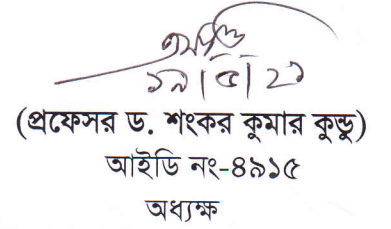 ১৯|৫|২১
(প্রফেসর ড. শংকর কুমার কুন্ডু)
আইডি নং-৪৯১৫
অধ্যক্ষ